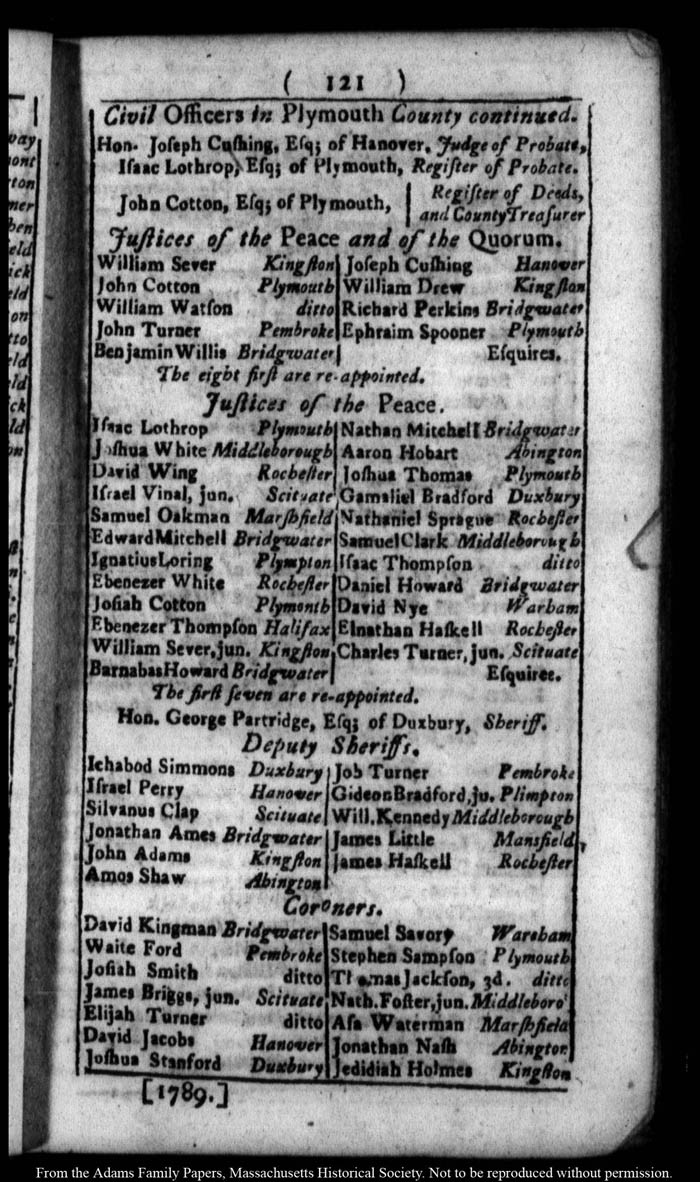 ( 121 )
Civil Officers in Plymouth County continued.
Hon. Joſeph Cuſhing, Eſq; of Hanover, Judge of Probate,
Iſaac Lothrop, Eſq; of Plymouth, Regiſter of Probate.
John Cotton, Eſq; of Plymouth, Regiſter of Deeds,
and County Treaſurer
Juſtices of the Peace and of the Quorum.
William Sever Kingſton
John Cotton Plymouth
William Watſon ditto
John Turner Pembroke
Benjamin Willis Bridgwater
Joſeph Cuſhing Hanover
William Drew Kingſton
Richard Perkins Bridgwater
Ephraim Spooner Plymouth
Eſquires.
The eight firſt are re-appointed.
Juſtices of the Peace.
Iſaac Lothrop Plymouth
Joſhua White Middleborough
David Wing Rocheſter
Iſrael Vinal, jun. Scituate
Samuel Oakman Marſhfield
Edward Mitchell Bridgwater
Ignatius Loring Plympton
Ebenezer White Rocheſter
Joſiah Cotton Plymouth
Ebenezer Thompſon Halifax
William Sever, jun. Kingſton
Barnabas Howard Bridgwater
Nathan Mitchell Bridgwater
Aaron Hobart Abington
Joſhua Thomas Plymouth
Gamaliel Bradford Duxbury
Nathaniel Sprague Rocheſter
Samuel Clark Middleborough
Iſaac Thompſon ditto
Daniel Howard Bridgwater
David Nye Warham
Elnathan Haſkell Rocheſter
Charles Turner, jun. Scituate
Eſquires.
The firſt ſeven are re-appointed.
Hon. George Partridge, Eſq; of Duxbury, Sheriff.
Deputy Sheriffs.
Ichabod Simmons Duxbury
Iſrael Perry Hanover
Silvanus Clap Scituate
Jonathan Ames Bridgwater
John Adams Kingſton
Amos Shaw Abington
Job Turner Pembroke
Gideon Bradford, ju. Plimpton
Will. Kennedy Middleborough
James Little Mansfield,
James Haſkell Rocheſter
Coroners.
David Kingman Bridgwater
Waite Ford Pembroke
Joſiah Smith ditto
James Briggs, jun. Scituate
Elijah Turner ditto
David Jacobs Hanover
Joſhua Stanford Duxbury
Samuel Savory Wareham
Stephen Sampſon Plymouth
Thomas Jackſon, 3d. ditto
Nath. Foſter, jun. Middleboro'
Aſa Waterman Marſhfield
Jonathan Naſh Abington
Jedidiah Holmes Kingſton
[1789.]
From the Adams Family Papers, Massachusetts Historical Society. Not to be reproduced without permission.